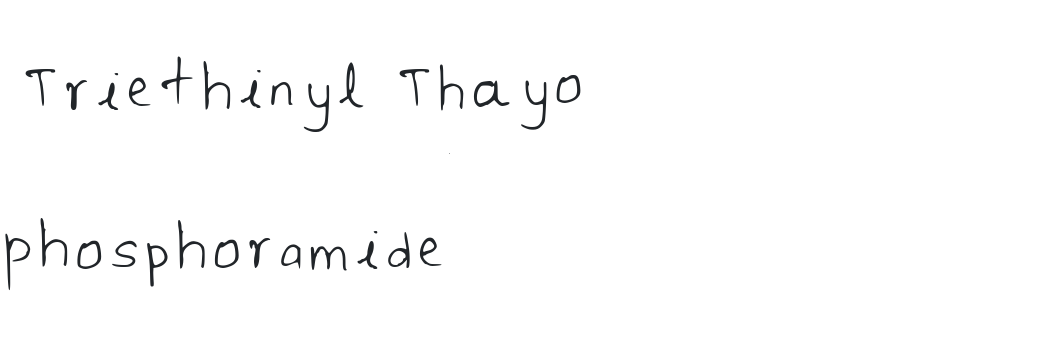 Triethinyl Thayo
phosphoramide